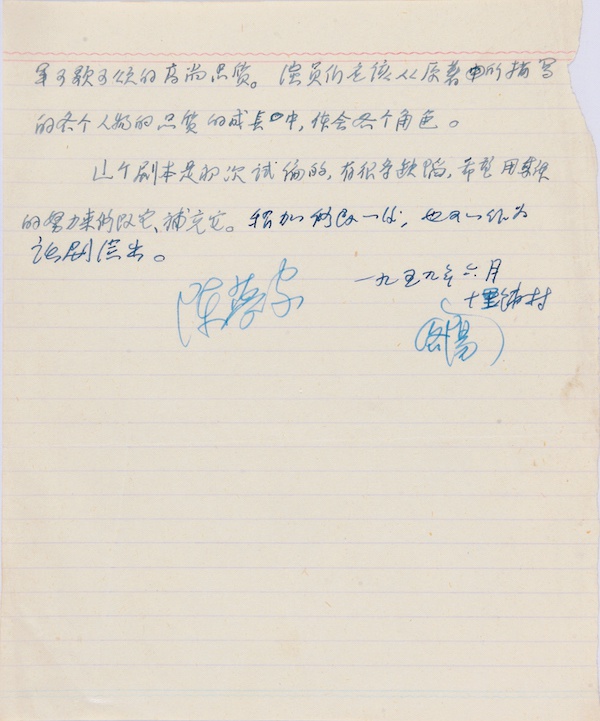 是可歌可颂的高尚品质。演员们应该从原著中所描写
的各个人物的品质的成长中,体会各个角色。
这个剧本是初次试编的,有很多缺陷,希望用集体
的努力来修改它、补充它。稍加修改一下,也可以作为
话剧演出。
一九五九年六月
十里铺村
陈梦家
(洛阳)